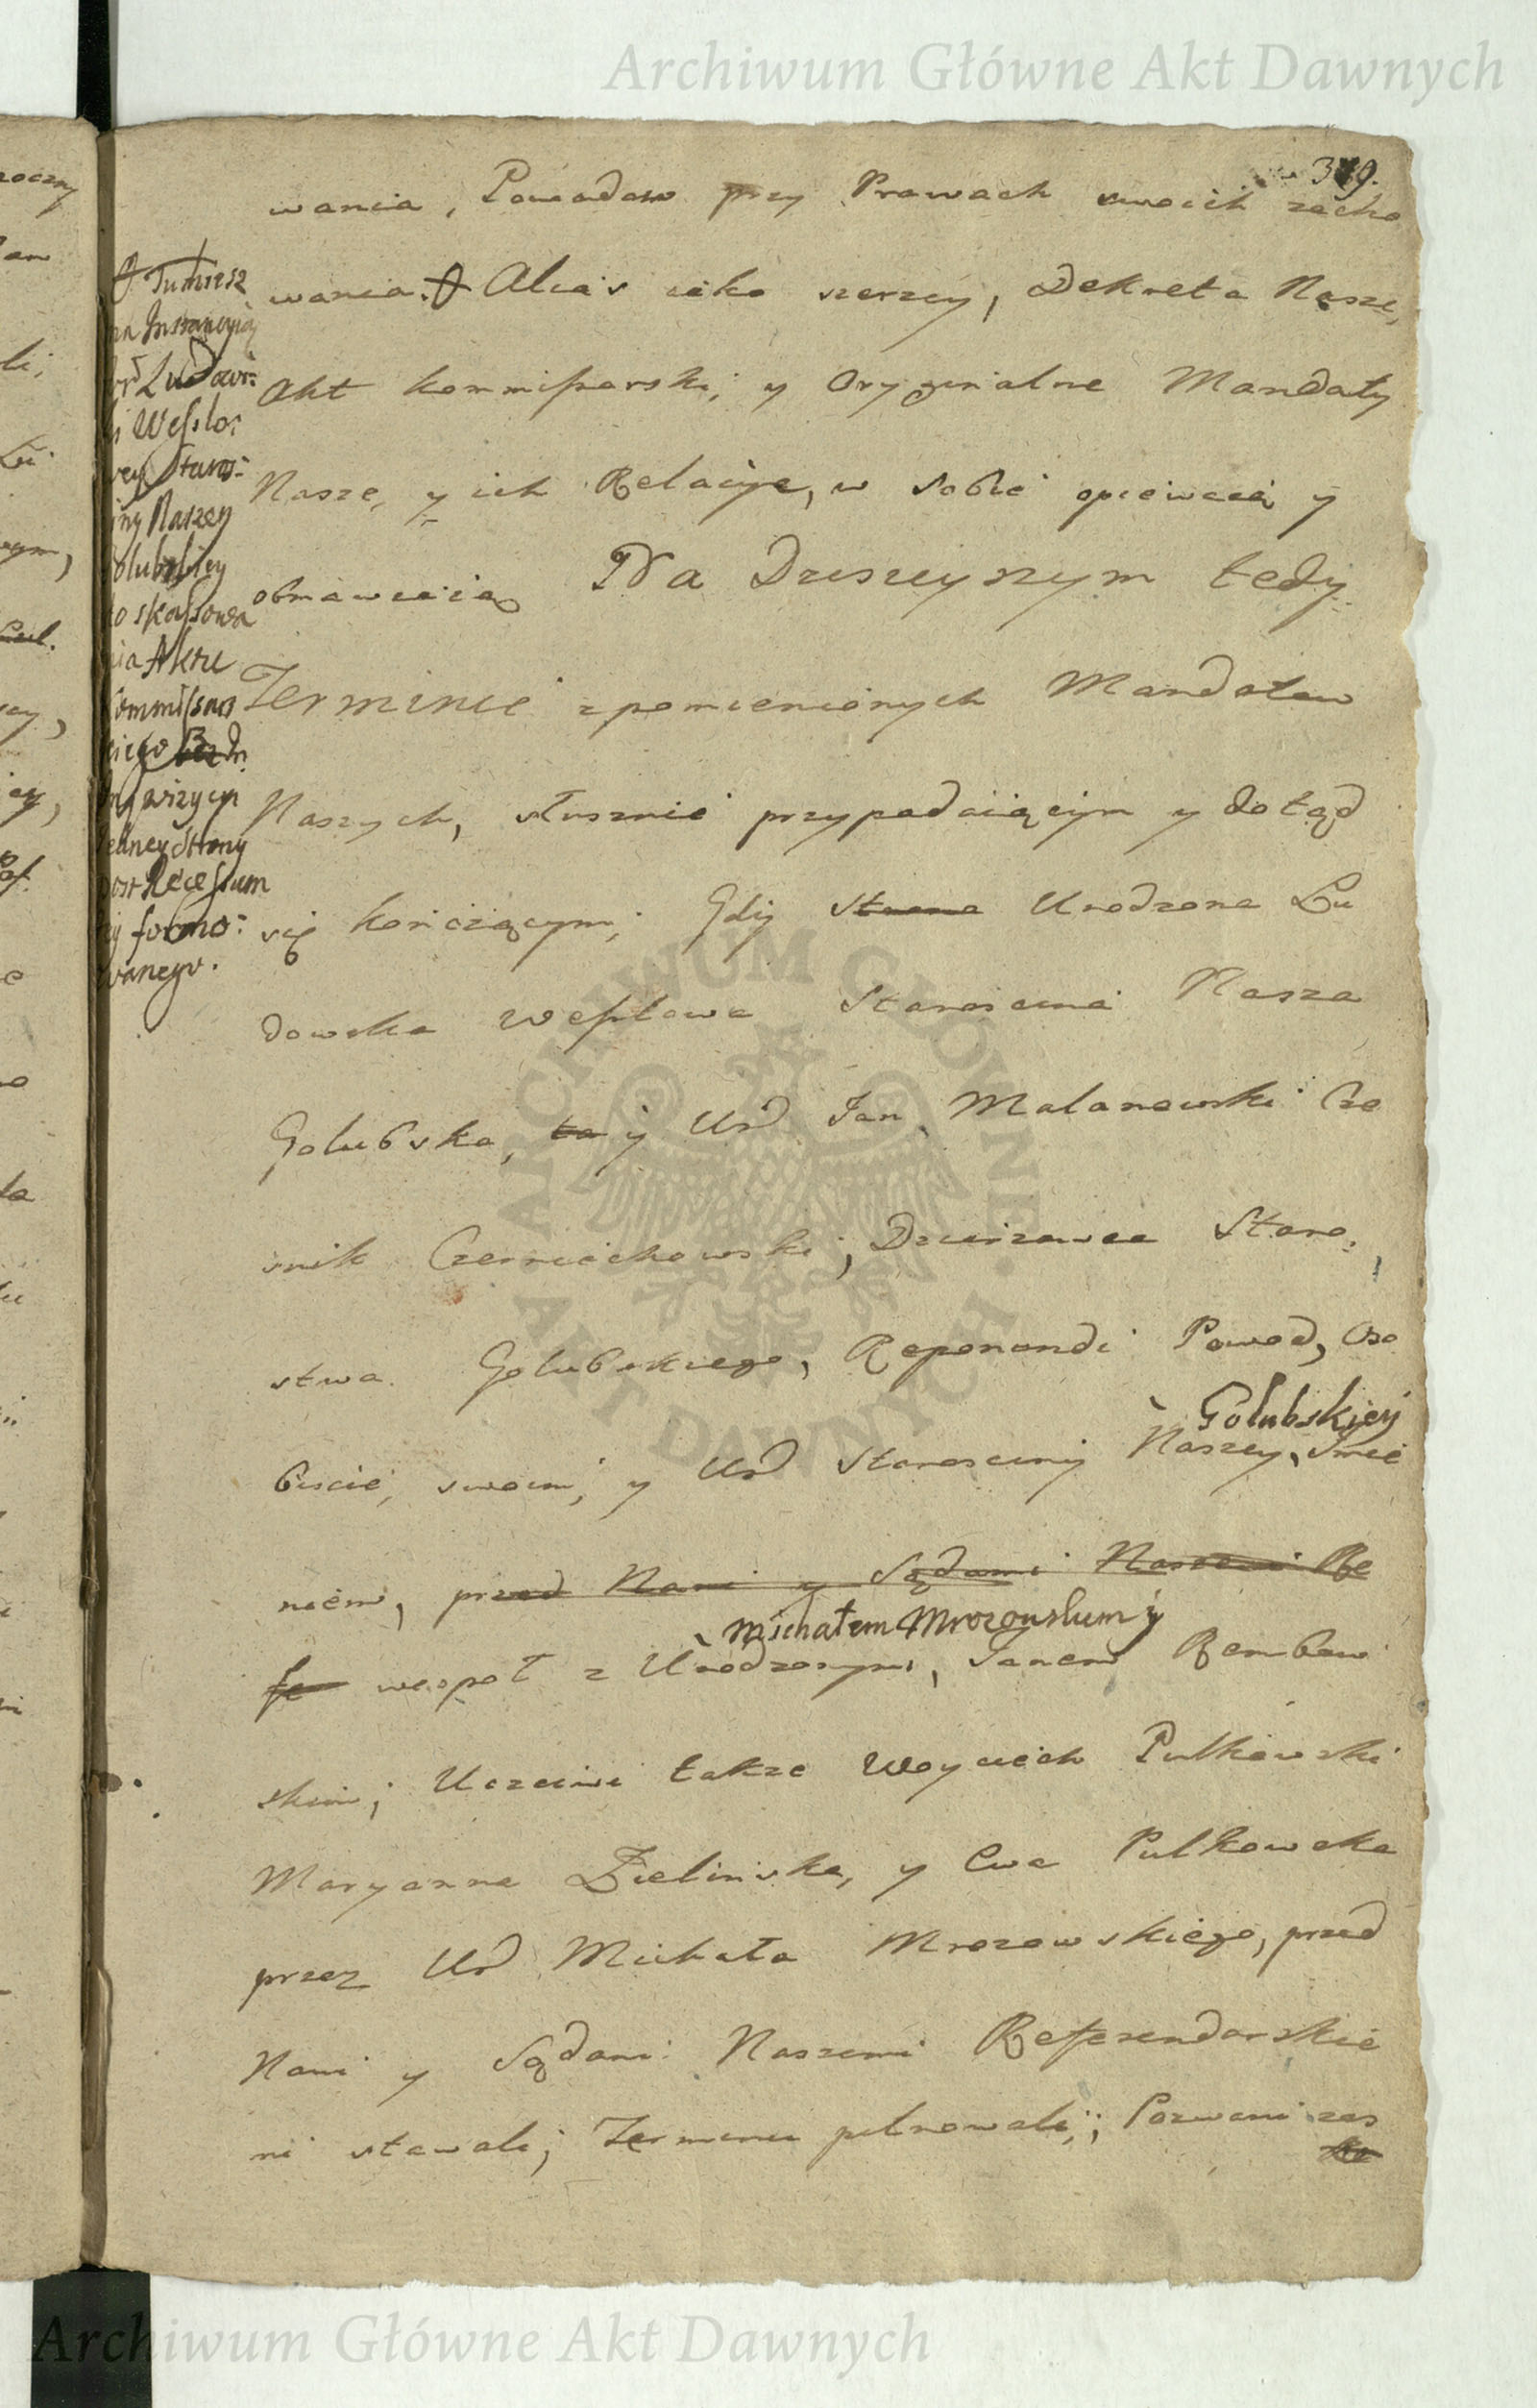 Archiwum Główne Akt Dawnych
379.
wania, Powodow przy Prawach swoich zacho
wania. Alias iako szerzey, Dekreta Nasze,
Akt kommissarski, y Oryginalne Mandaty
Nasze, y ich Relacye, w sobie opiewaią y
obmawiaią Na Dzisieyszym tedy
Terminie zpomienionych Mandatow
Naszych, słusznie przypadaiącym y dotąd
się kończącym; Gdy Strona Urodzona Lu
dowika Wesslowa Starościna Nasza
Golubska, ta y Ur Jan Malanowski Cze
snik Czerniechowski, Dzierzawca Staro:
stwa Golubskiego, Reponendi Powod, Oso
Golubskiey
biscie, swoim, y Ur Starosciny Naszey, Imie
niem, przed Nami y Sądami Naszemi Re
Michałem Mrozowskim y
fe wespoł z Urodzonym, Janem Rembow
skim; Uczciwi takze Woyciech Pulkowski
Maryanna Zielinska, y Ewa Pulkowska
przez Ur Michała Mrozowskiego, przed
Nami y Sądami Naszemi Referendarskie
mi stawali; Terminu pilnowali; Pozwani zas
Tudziesz
na Instancyią
Ur Ludowi:
ki Wesslo:
wey Staros:
ciny Naszey
Golubskiey
do skassowa
nia Aktu
Kommissar
skiego
jedney Strony
post Recessum
formo:
wanego.
ARCHIWUM GŁÓWNE AKT DAWNYCH
Archiwum Główne Akt Dawnych